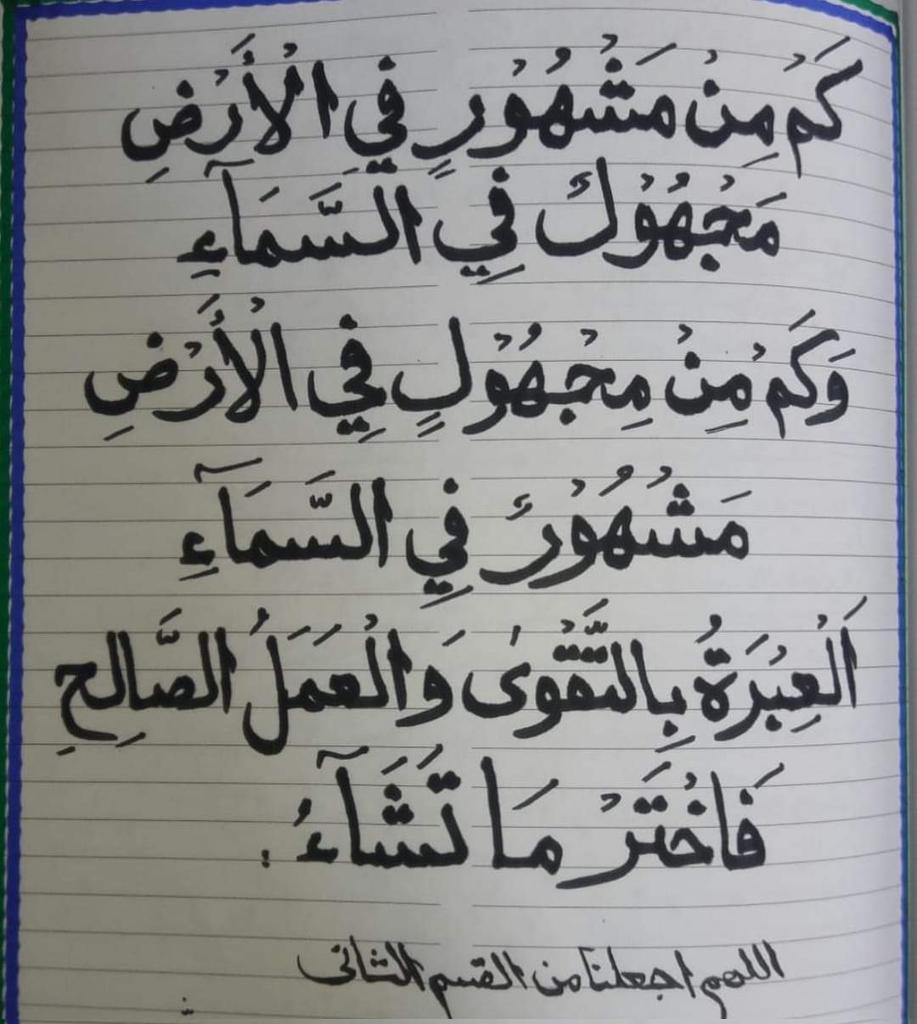 كَمْ مِنْ مَشْهُوْرٍ فِي الْأَرْضِ
مَجْهُوْلٌ فِي السَّمَآءِ
وَكَمْ مِنْ مِجْهُوْلٍ فِي الْأَرْضِ
مَشْهُوْرٌ فِي السَّمَآءِ
اَلْعِبْرَةُ بِالتَّقْوٰى وَالْعَمَلُ الصَّالِحِ
فَاخْتَرْ مَا تَشَآءُ.
اللهم اجعلنا من القسم الثانى